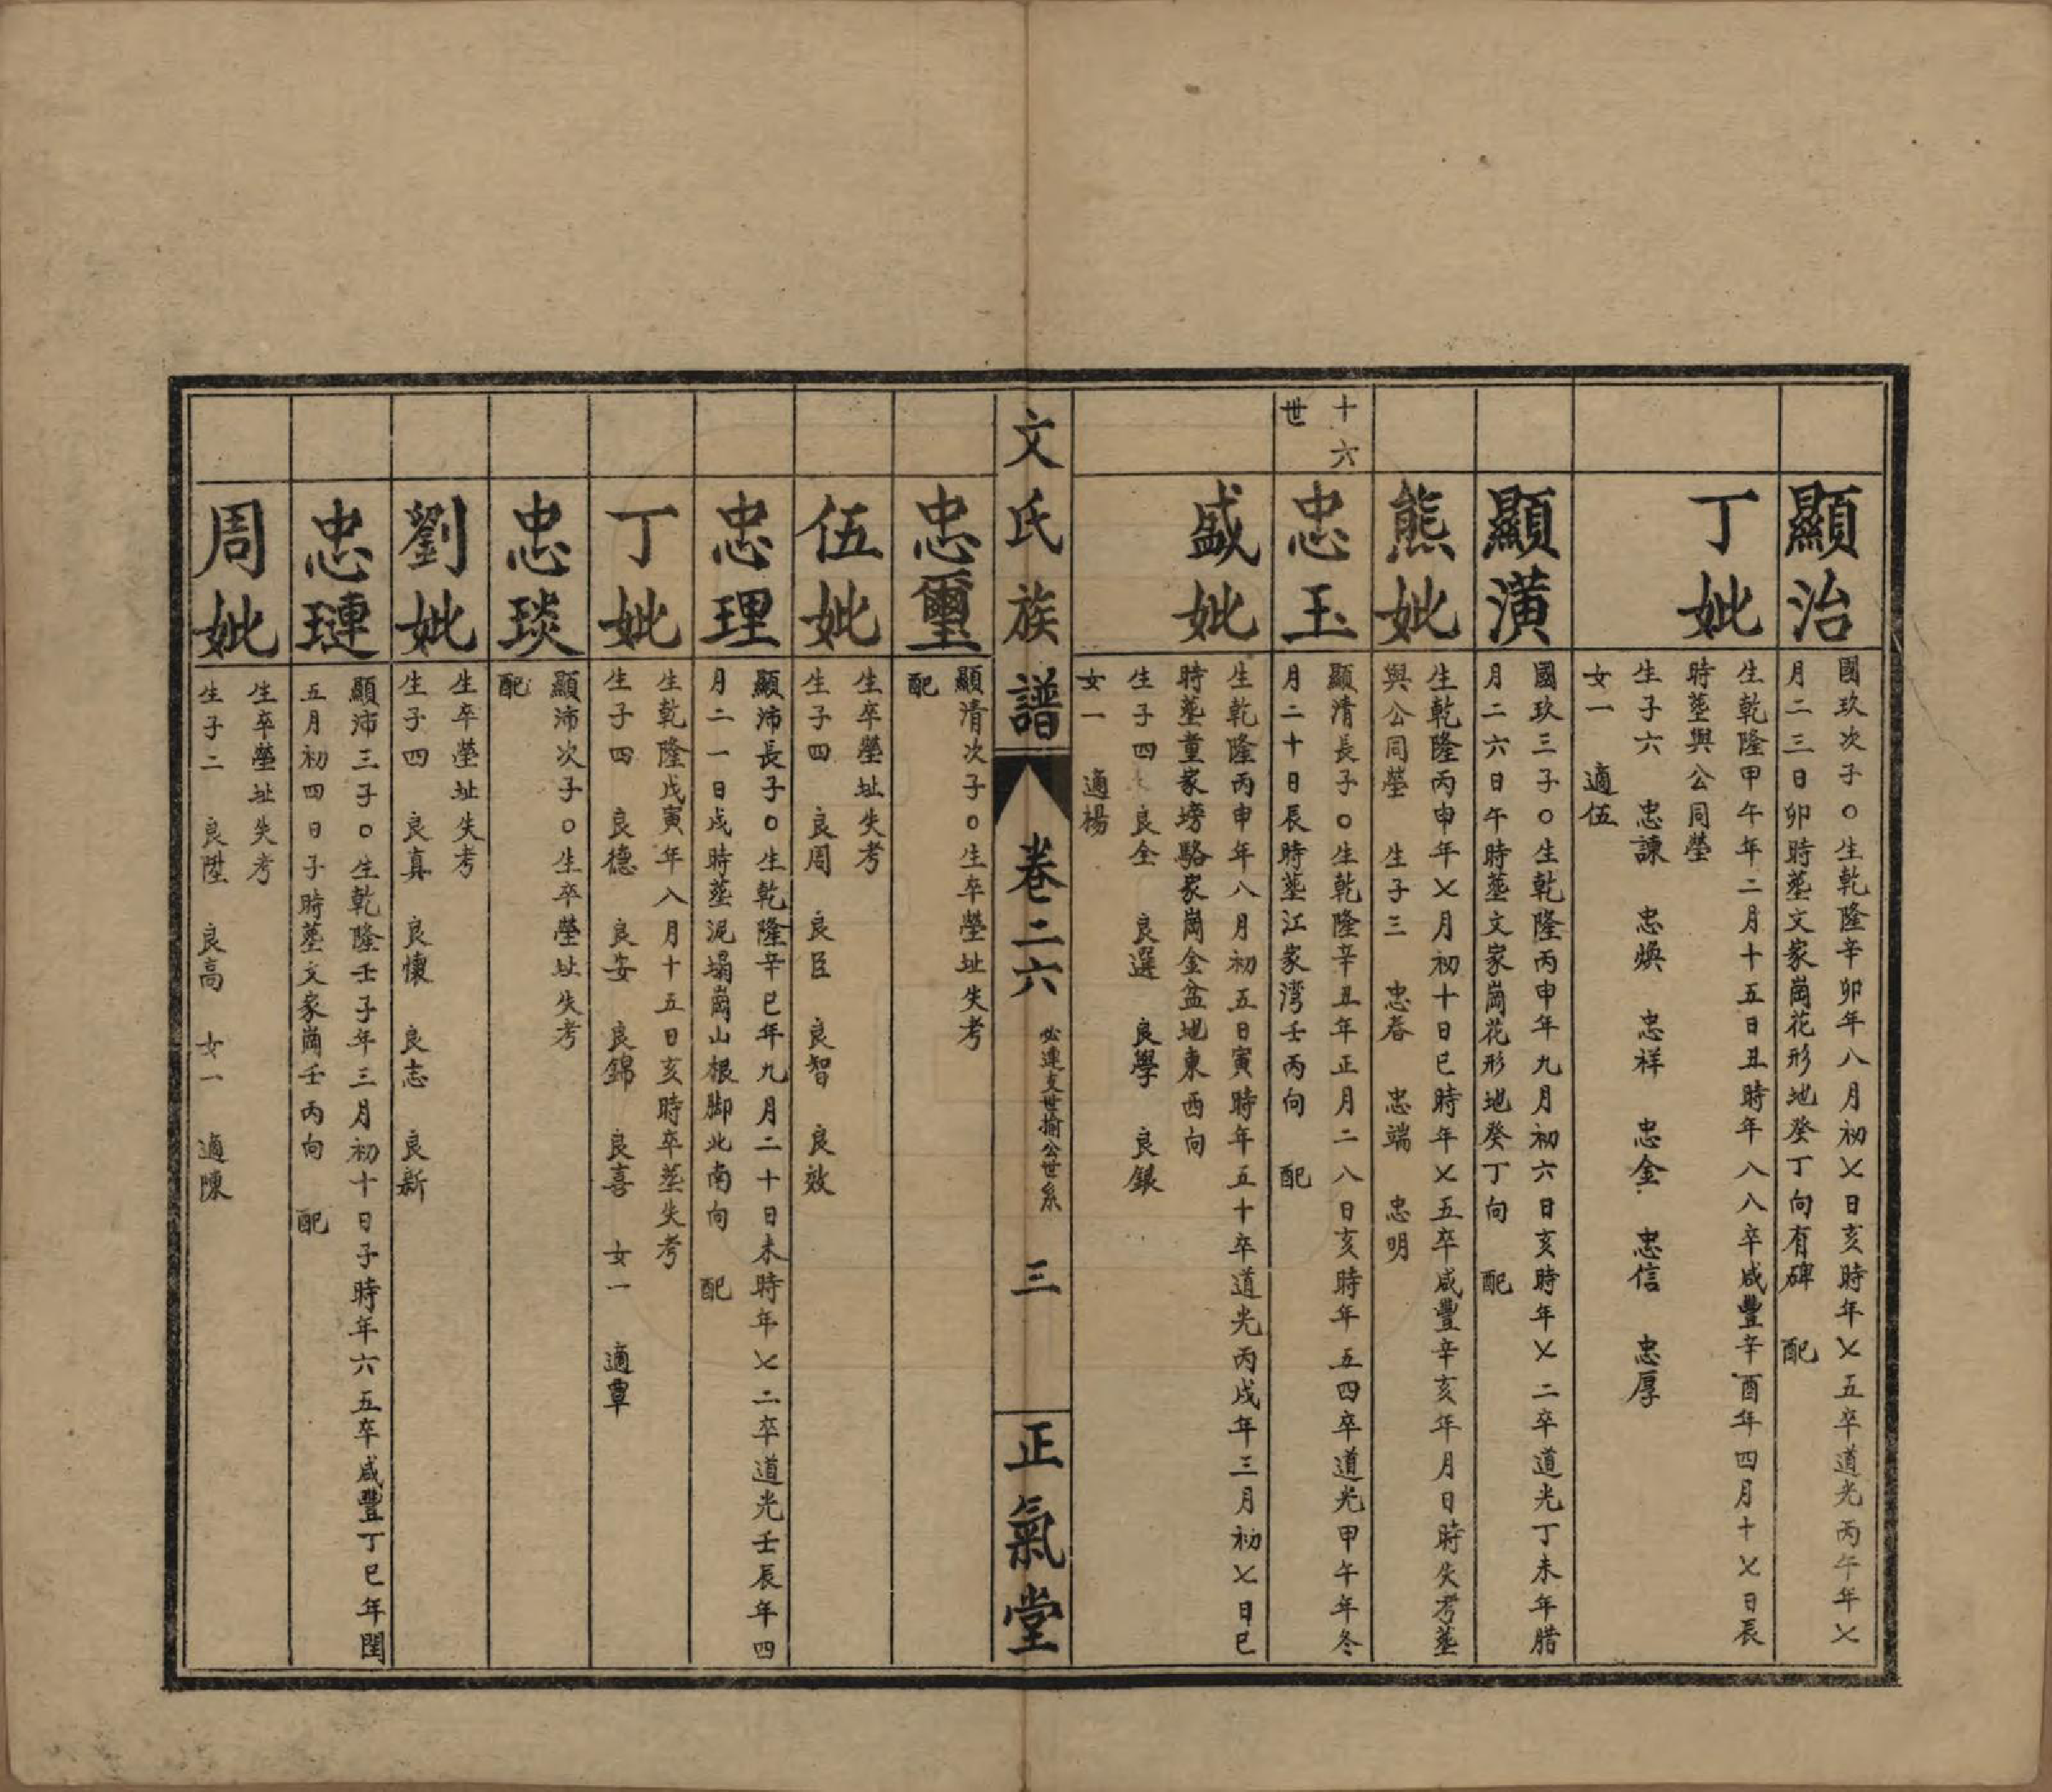 顯治
國玖次子○生乾隆辛卯年八月初七日亥時年七五卒道光丙午年七
月二三日卯時塟文家崗花形地癸丁向有碑　配
丁妣
生乾隆甲午年二月十五日丑時年八八卒咸豐辛酉年四月十七日辰
時塟與公同塋
生子六　忠諫　忠煥　忠祥　忠金　忠信　忠厚
女一　適伍
顯潢
國玖三子○生乾隆丙申年九月初六日亥時年七二卒道光丁未年腊
月二六日午時塟文家崗花形地癸丁向　配
熊妣
生乾隆丙申年七月初十日巳時年七五卒咸豐辛亥年月日時失考塟
與公同塋　生子三　忠春　忠端　忠明
十六
世
忠玉
顯清長子○生乾隆辛丑年正月二八日亥時年五四卒道光甲午年冬
月二十日辰時塟江家湾壬丙向　配
盛妣
生乾隆丙申年八月初五日寅時年五十卒道光丙戌年三月初七日巳
時塟童家塝駱家崗金盆地東西向
生子四　良全　良選　良學　良銀
女一　適楊
文氏族譜　卷二六　必達支世揄公世系　三　正氣堂
忠璽
顯清次子○生卒塋址失考
配
伍妣
生卒塋址失考
生子四　良周　良臣　良智　良效
忠理
顯沛長子○生乾隆辛巳年九月二十日未時年七二卒道光壬辰年四
月二一日戌時塟泥塌崗山根脚北南向　配
丁妣
生乾隆戊寅年八月十五日亥時卒塟失考
生子四　良德　良安　良錦　良喜　女一　適覃
忠琰
顯沛次子○生卒塋址失考
配
劉妣
生卒塋址失考
生子四　良真　良懷　良志　良新
忠璉
顯沛三子○生乾隆壬子年三月初十日子時年六五卒咸豐丁巳年閏
五月初四日子時塟文家崗壬丙向　配
周妣
生卒塋址失考
生子二　良陞　良高　女一　適陳